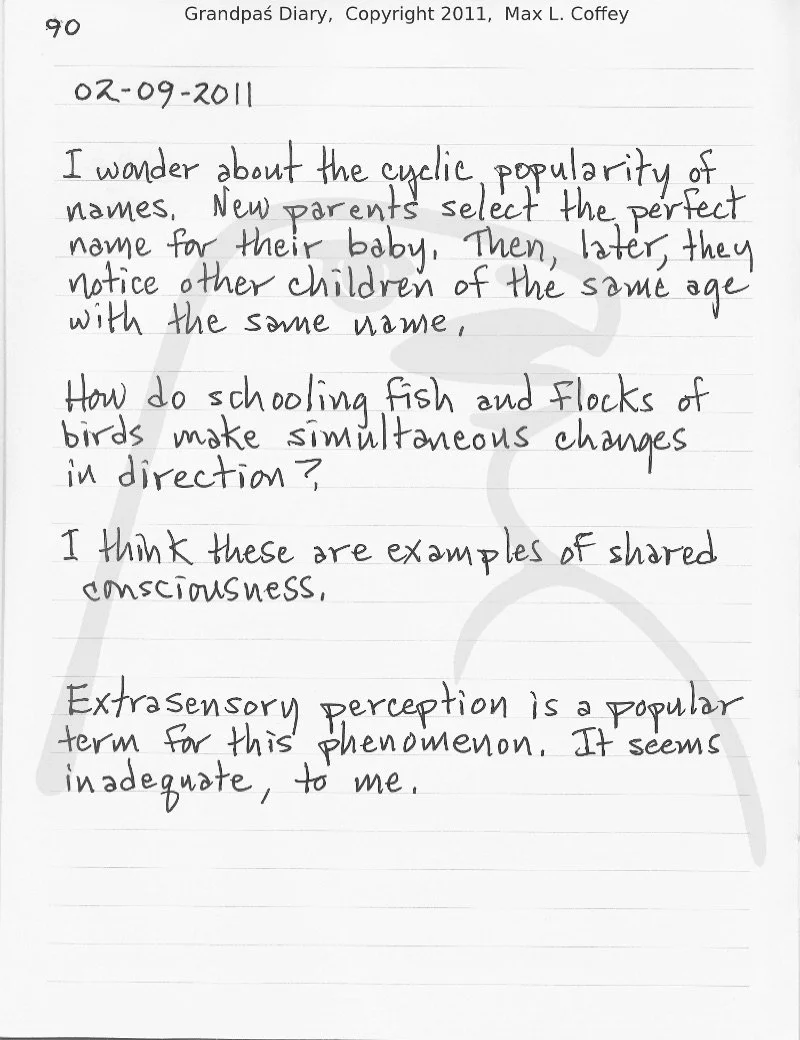 Grandpaś Diary, Copyright 2011, Max L. Coffey
90
02-09-2011
I wonder about the cyclic popularity of
names. New parents select the perfect
name for their baby. Then, later, they
notice other children of the same age
with the same name.
How do schooling fish and flocks of
birds make simultaneous changes
in direction?
I think these are examples of shared
consciousness.
Extrasensory perception is a popular
term for this phenomenon. It seems
inadequate, to me.